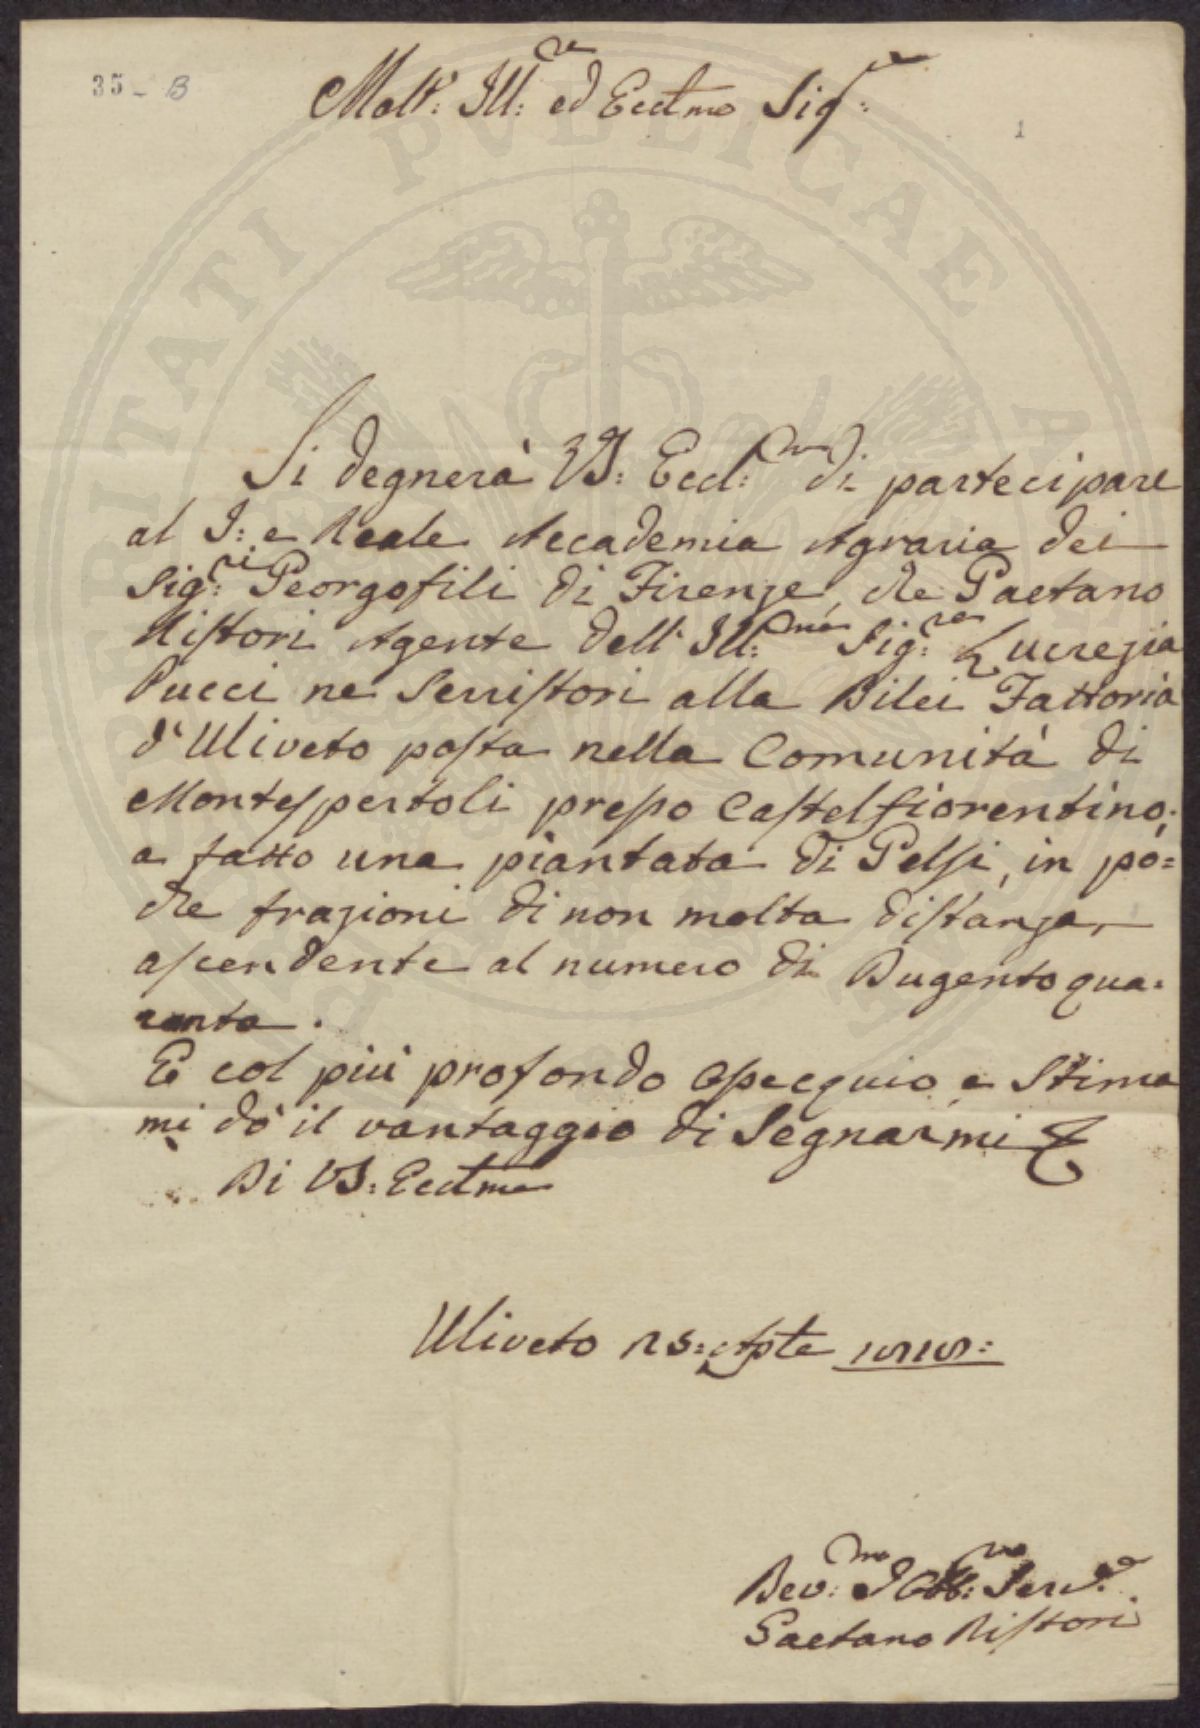 35 - B
1
Molt: Ill:re ed Eccll:mo Sigre:
Si degnerà VS: Eccl:ma di partecipare
al I: e Reale Accademia Agraria dei
Sig:ri Georgofili di Firenze, che Gaetano
Ristori Agente dell' Ill:ma Sig:ra Lucrezia
Pucci ne Serristori alla Di lei Fattoria
d'Uliveto posta nella Comunità di
Montespertoli presso Castelfiorentino,
a fatto una piantata di Gelsi, in po=
che frazioni di non molta distanza,
ascendente al numero di Dugento qua=
ranta.
E col più profondo Ossequio, e Stima
mi dò il vantaggio di Segnarmi
Di VS: Eccllma
Uliveto
Dev:mo ed Obb:mo Serv:e
Gaetano Ristori
PVBLICAE
PROSPERITATI